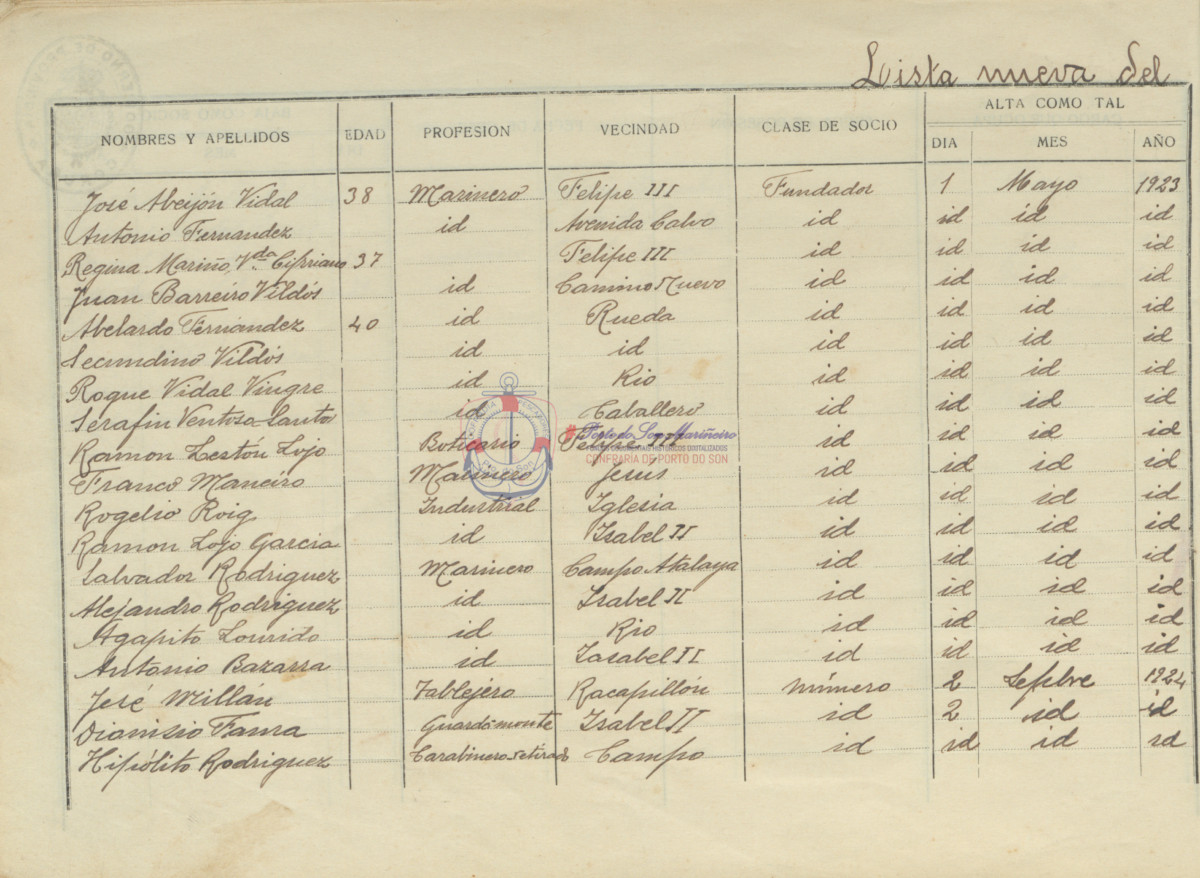 Lista nueva del
NOMBRES Y APELLIDOS EDAD PROFESION VECINDAD CLASE DE SOCIO ALTA COMO TAL
DIA MES AÑO
José Abeijón Vidal 38 Marinero Felipe III Fundador 1 Mayo 1923
Antonio Fernandez id Avenida Calvo id id id id
Regina Mariño, Vda Cipriano 37 Felipe III id id id id
Juan Barreiro Vildós id Camino Nuevo id id id id
Abelardo Fernández 40 id Rueda id id id id
Secundino Vildós id id id id id id
Roque Vidal Vingre id Rio id id id id
Serafin Ventosa Santos id Caballero id id id id
Ramon Lestón Lojo Boticario Felipe III id id id id
Franco Maneiro Marinero Jesús id id id id
Rogelio Roig Industrial Iglesia id id id id
Ramon Lojo Garcia id Isabel II id id id id
Salvador Rodriguez Marinero Campo Atalaya id id id id
Alejandro Rodriguez id Isabel II id id id id
Agapito Lourido id Rio id id id id
Antonio Bazarra id Isabel II id id id id
José Millán Tablejéro Racapillón número 2 Sepbre 1924
Dionisio Fama Guarda-monte Isabel II id 2 id id
Hipólito Rodriguez Carabinero retirado Campo id id id id
Porto do Son Mariñeiro
CONFRARÍA DE PORTO DO SON